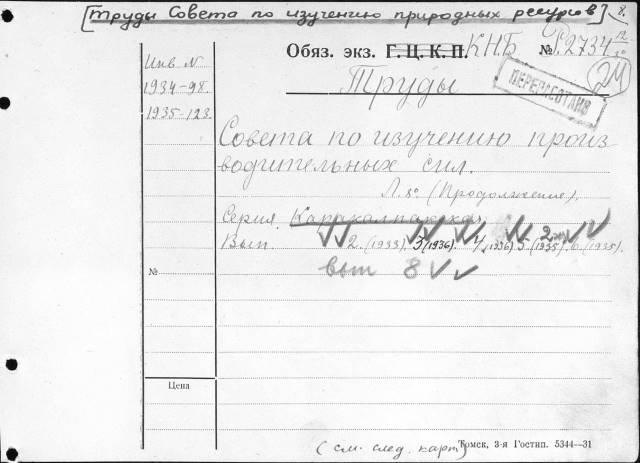 [Труды Совета по изучению природных ресурсов] 8.
Обяз. экз. Г. Ц. К. П. КНБ № 2734
24
Инв. №
1934-98.
1935-123
Труды
ПЕРЕРАБОТАНО
Совета по изучению произ
водительных сил.
Л. 8°. (Продолжение).
Серия Каракалпакская
Вып. 2. (1933). 3 (1936). 4. (1936) 5. (1935). 6. (1935).
вып 8
№
Цена
(см. след. карт)
Томск, 3-я Гостип. 5344—31